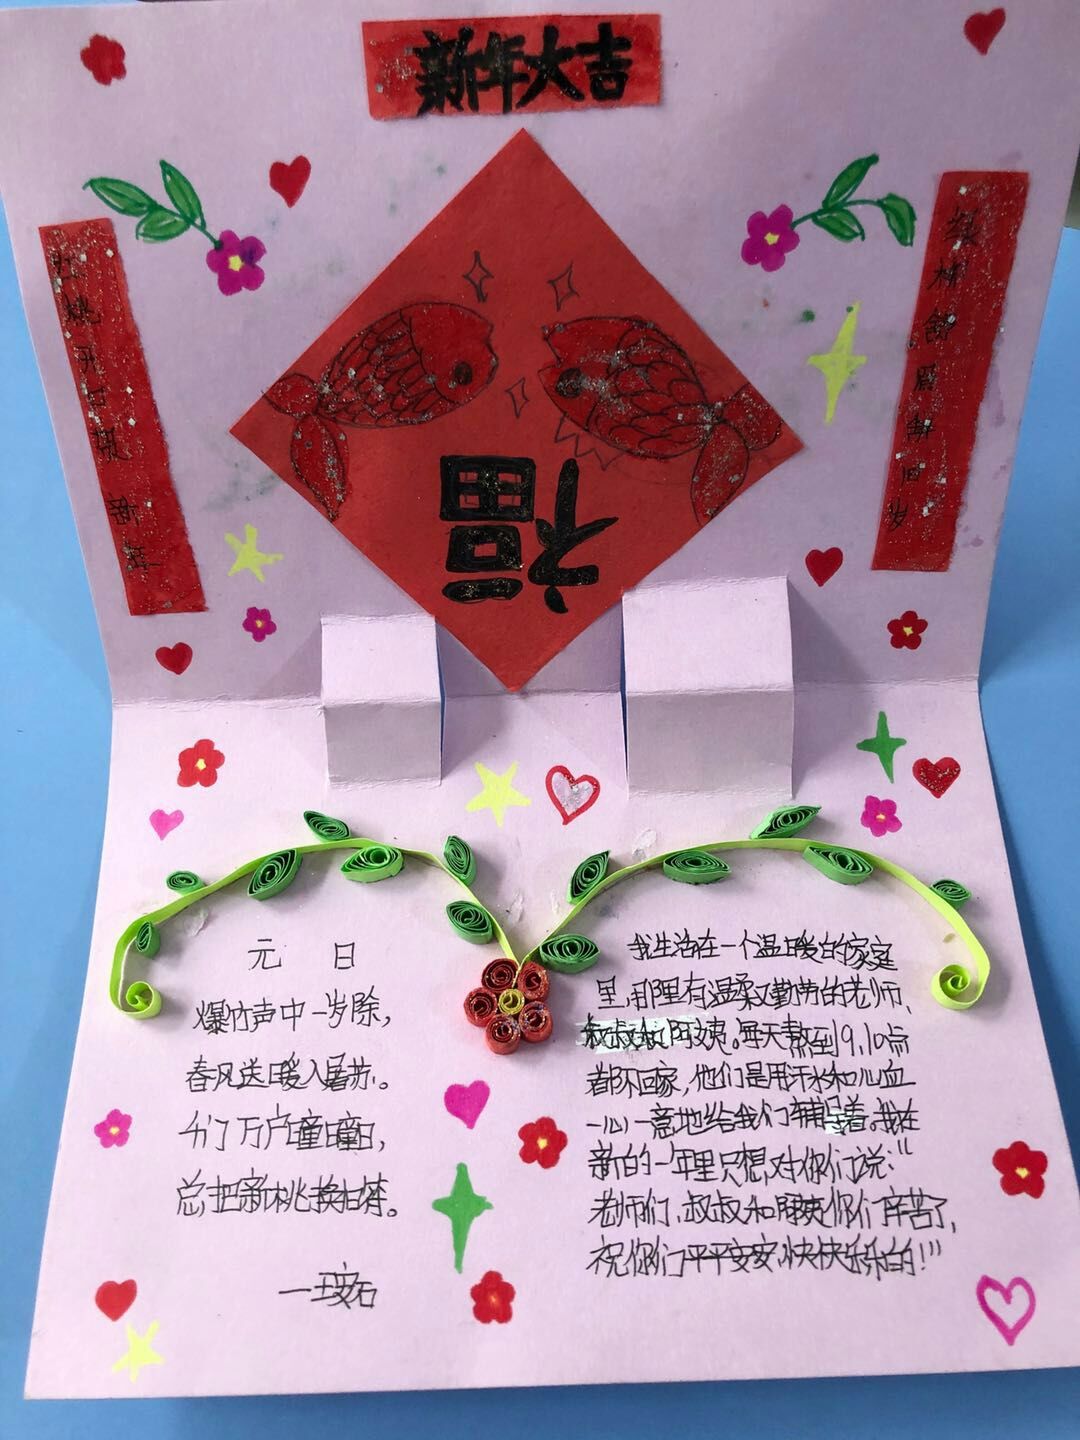 新年大吉
绿柳舒眉辞旧岁
红桃开口
福
元 日
爆竹声中一岁除,
春风送暖入屠苏。
千门万户曈曈日,
总把新桃换旧符。
—王安石
我生活在一个温暖的家庭
里,那里有温柔又勤劳的老师、
叔叔和阿姨。每天熬到9,10点
都不回家,他们是用汗水和心血
一心一意地给我们辅导着。我在
新的一年里只想对你们说:“
老师们、叔叔和阿姨你们辛苦了,
祝你们平平安安,快快乐乐的!”